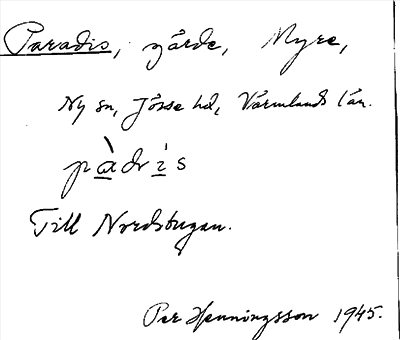 Paradis, gärde, Myre,
Ny sn, Jösse hd, Värmlands län.
pàdrís
Till Nordstugan.
Per Henningsson 1945.